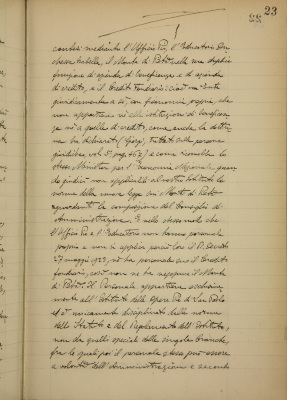 23
22
cantieri mediante l'Ufficio Pio, l'Educatorio Du-
chessa Isabella, il Monte di Pietà nella sua duplice
funzione di azienda di beneficenza e di azienda
di credito, e il Credito Fondiario: ciascun Ente
giuridicamente a sé, con fisionomia propria, che
non appartiene né alle istituzioni di beneficen-
za né a quelle di credito, come anche la dottri-
na ha dichiarato (Giorgi, trattato delle persone
giuridiche, vol. 5° pag.
stesso Ministero per l'Economia Nazionale, quan-
do giudicò non applicabili al nostro Istituto le
norme della nuova legge sui Monti di Pietà
riguardanti la composizione del Consiglio di
Amministrazione. E nello stesso modo che
l'Ufficio Pio e l'Educatorio non hanno personale
proprio e non si applica perciò loro il R. Decreto
27 maggio 1923, né ha personale suo il Credito
fondiario, così non ne ha neppure il Monte
di Pietà. Il Personale appartiene esclusiva-
mente all'Istituto delle Opere Pie di San Paolo
ed è unicamente disciplinato dalle norme
dello Statuto e del Regolamento dell'Istituto,
non da quelle speciali delle singole branche,
fra le quali poi il personale stesso può essere
a volontà dell'Amministrazione e secondo